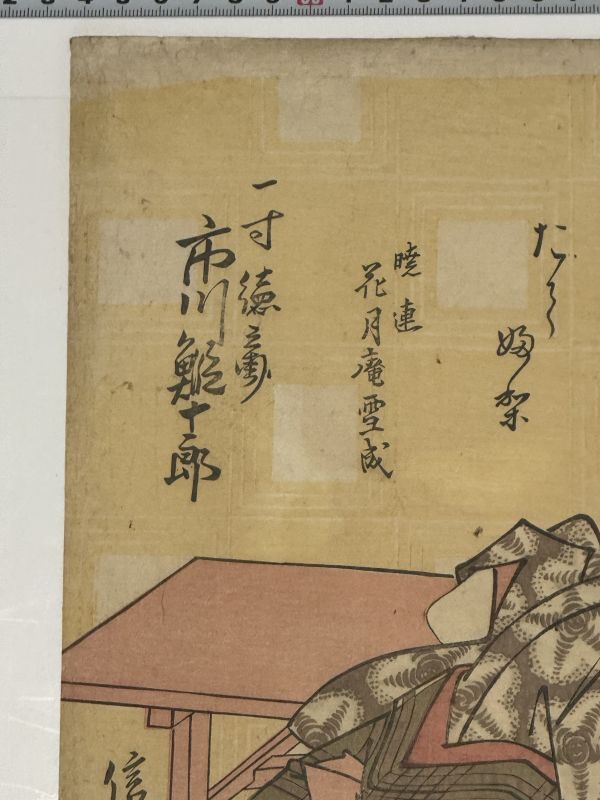 暁連
花月庵雪成
一寸徳兵衛
市川鰕十郎
信